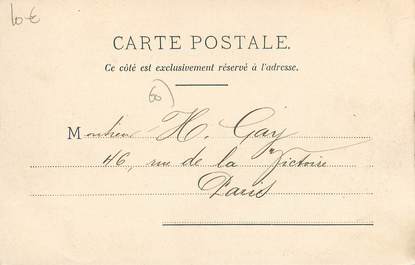 10 €
CARTE POSTALE.
Ce côté est exclusivement réservé à l'adresse.
60
Monsieur H. Gay
46, rue de la Victoire
Paris